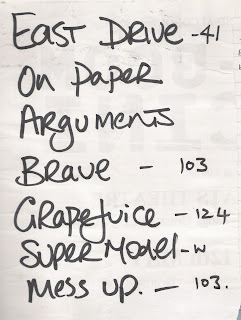 EAST DRIVE - 41
On PaPER
ARgumENTS
BRAVE - 103
GRAPEJUICE - 124
SUPER MODEL - W
MESS UP. - 103.